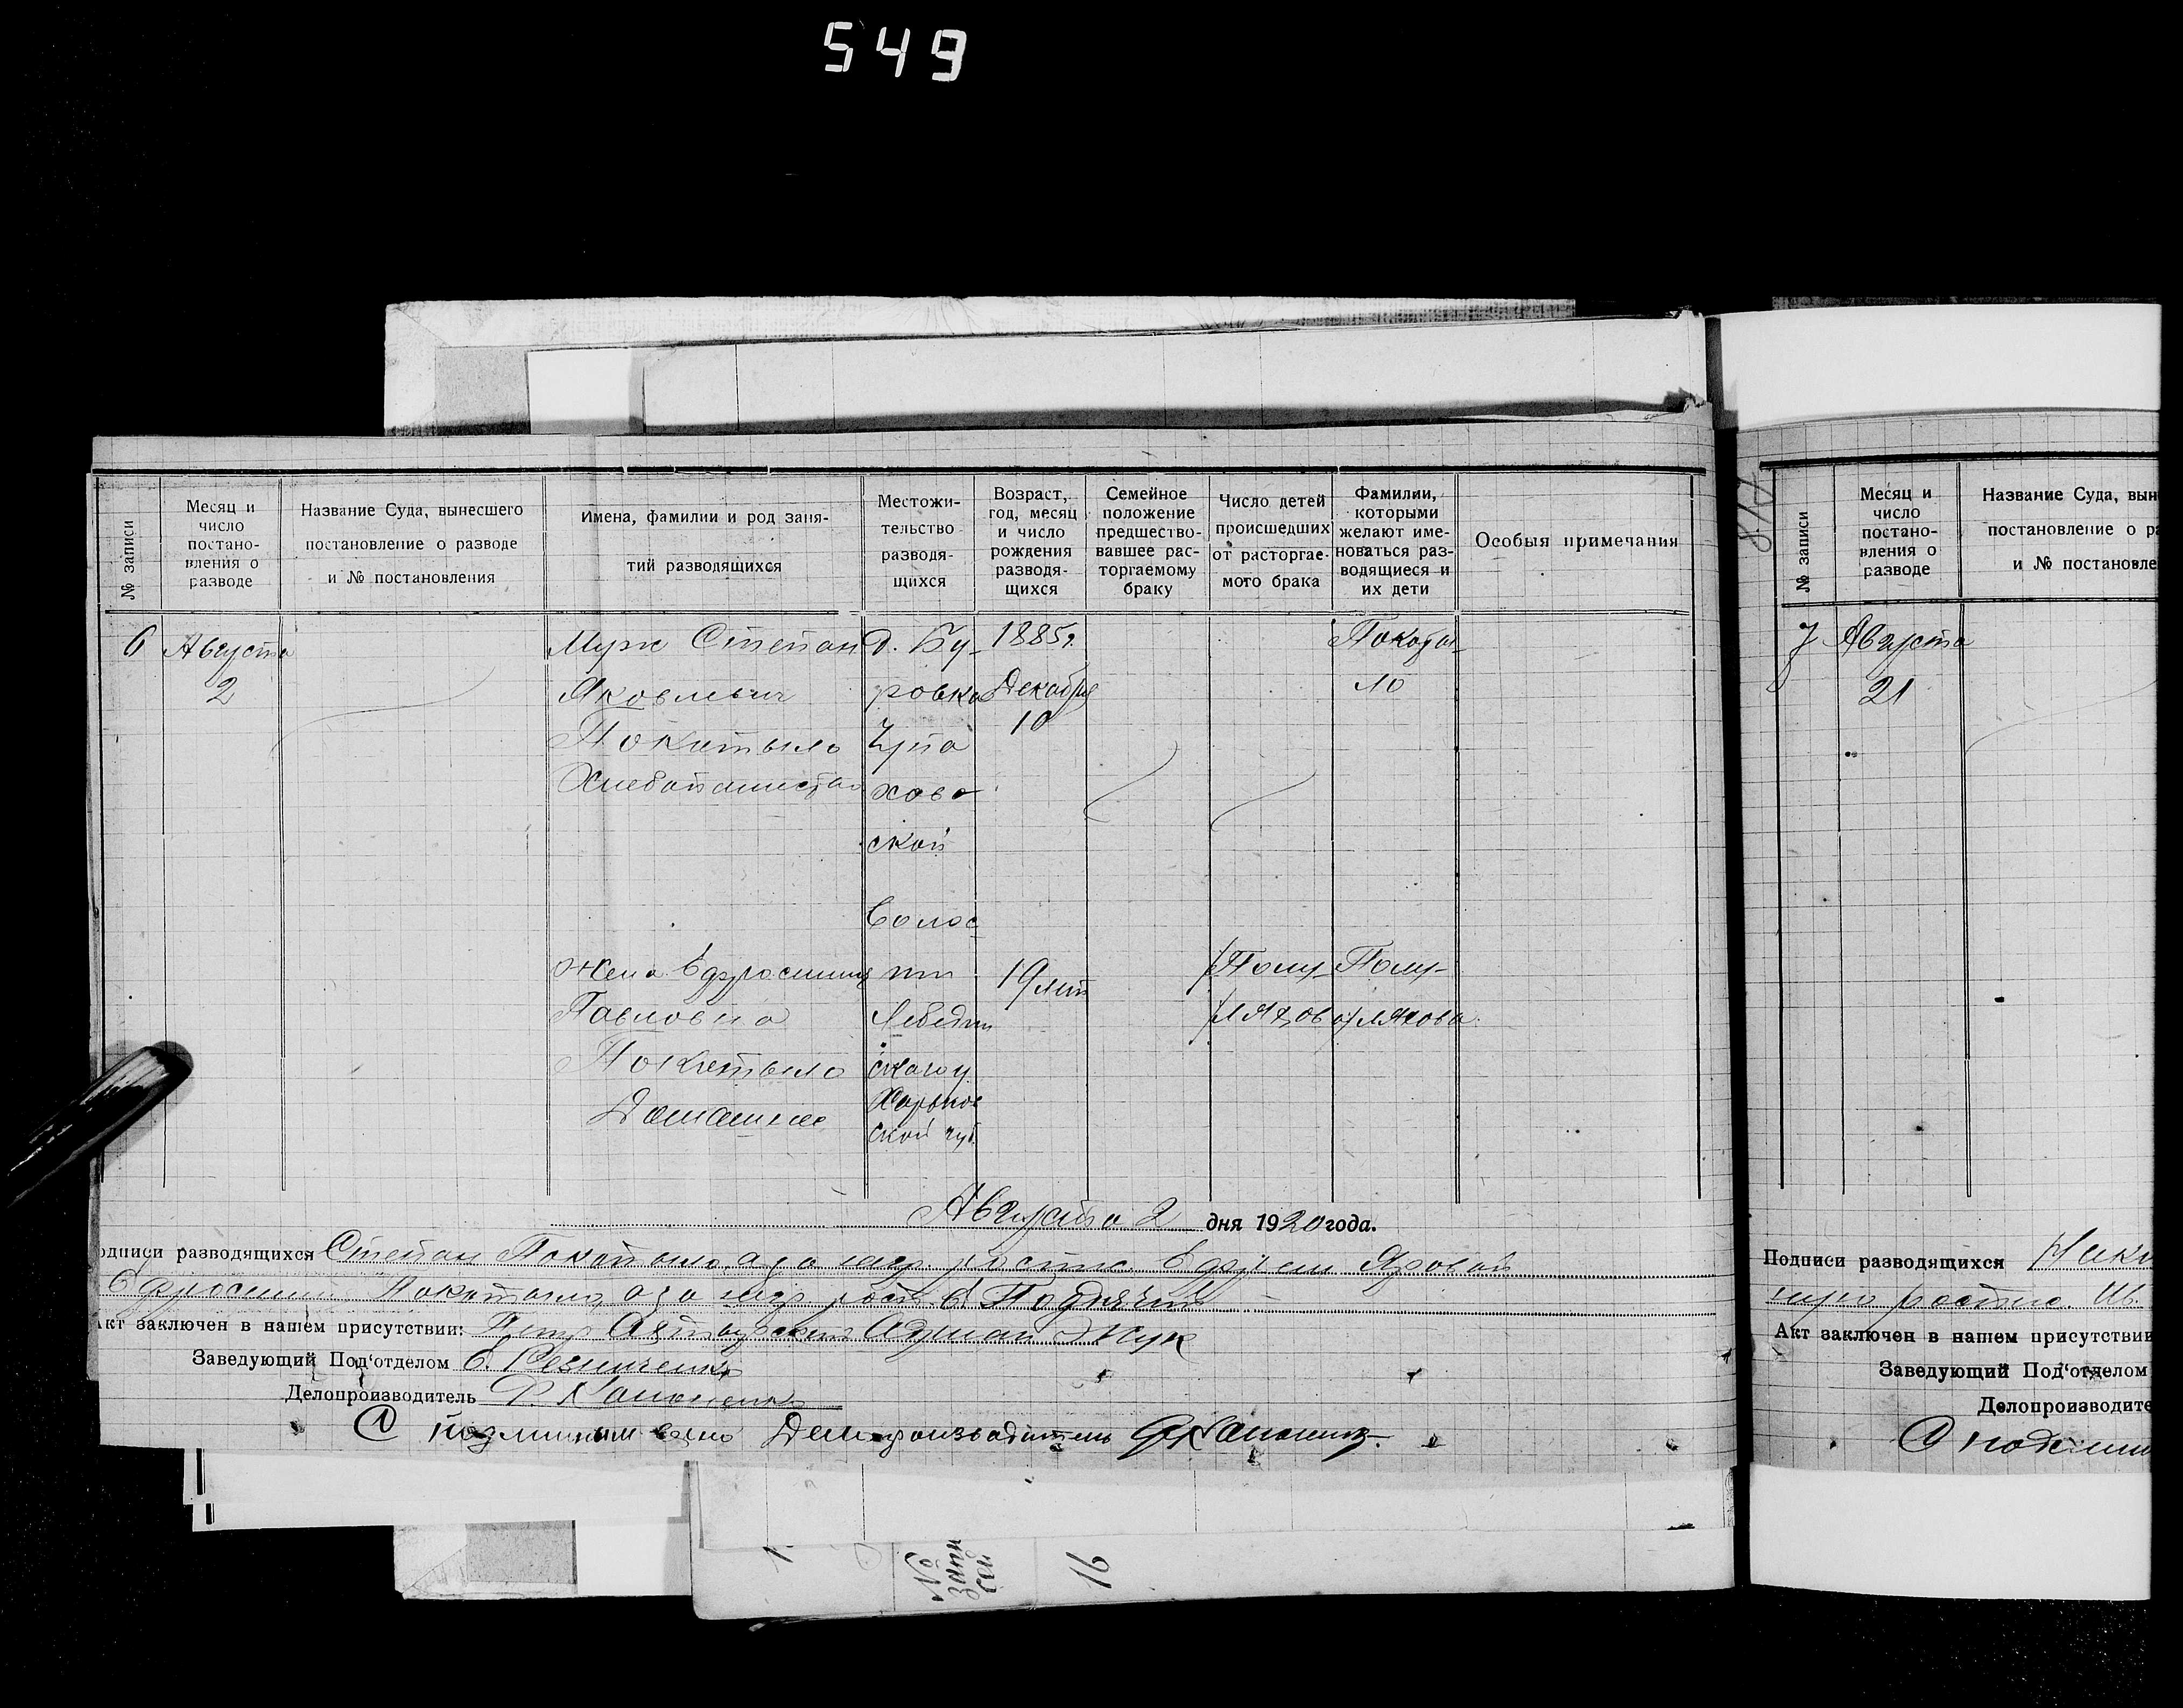 549
№ записи
Месяц и
число
постано-
вления о
разводе
Название Суда, вынесшего
постановление о разводе
и № постановления
Имена, фамилии и род заня-
тий разводящихся
Местожи-
тельство
разводя-
щихся
Возраст,
год, месяц
и число
рождения
разводя-
щихся
Семейное
положение
предшество-
вавшее рас-
торгаемому
браку
Число детей
происшедших
от расторгае-
мого брака
Фамилии,
которыми
желают име-
новаться раз-
водящиеся и
их дети
Особыя примечания
6
Августа
2
Муж Степан
Яковлевич
Покатыло
Жена Ефросиния
Павловна
Покатыло
Домашнее
д. Бу-
ровка
ской
Волос-
ти
Лебедин
ского у.
Харьков
ской губ.
1885г.
Декабря
10
19 лет
Полу-
ляхова
Полу-
ляхова
Августа 2 дня 1920 года.
одписи разводящихся Степан Покатыло, а за негр. Яровой
Ефросиния Покатыло а за негр.
Акт заключен в нашем присутствии: Петр Жук
Заведующий Под'отделом
Делопроизводитель
С подлинным верно Делопроизводитель
№ записи
Месяц и
число
постано-
вления о
разводе
Название Суда, вын
постановление о ра
и № постановле
7
Августа
21
Подписи разводящихся
Акт заключен в нашем присутствии
Заведующий Под'отделом
Делопроизводите
С подлин
№
запи
сей
16